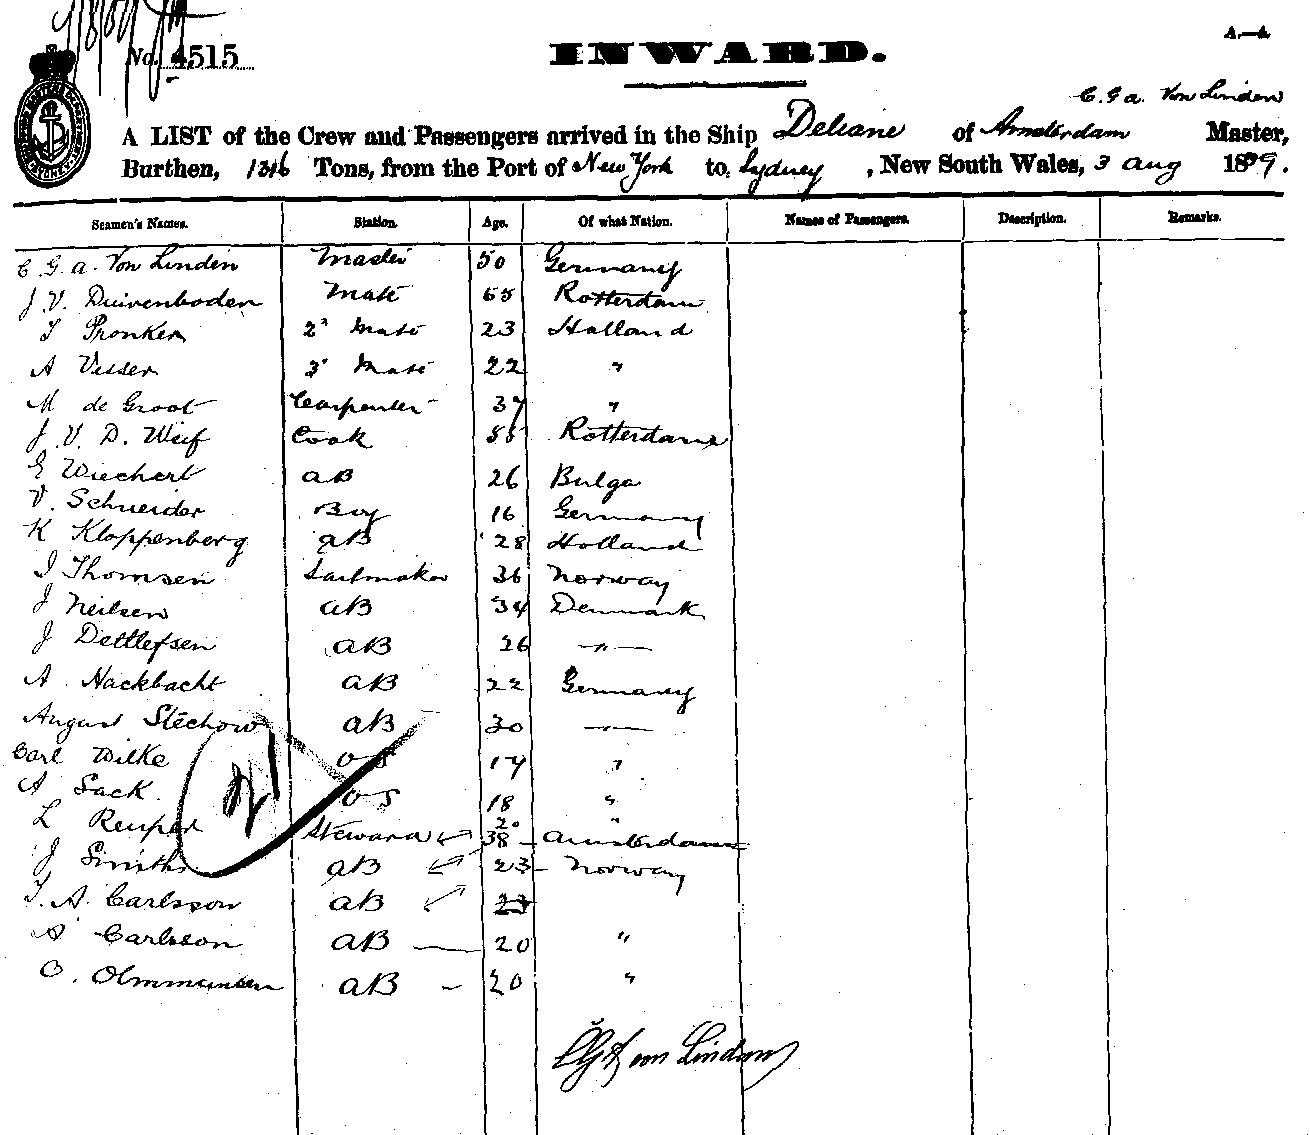 No. 4515
INWARD.
A.—A.
C. G. A. Von Linden
A LIST of the Crew and Passengers arrived in the Ship Deliane of Amsterdam Master,
Burthen, 1316 Tons, from the Port of New York to Sydney, New South Wales, 3 Aug 1899.
Seamen's Names. Station. Age. Of what Nation. Names of Passengers. Description. Remarks.
C. G. A. Von Linden Master 50 Germany
J. V. Duivenboden Mate 65 Rotterdam
T Pronker 2d Mate 23 Holland
A Visser 3d Mate 22 "
M de Groot Carpenter 37 "
J. V. D. Werf Cook 55 Rotterdam
E Wiechert AB 26 Bulga
V. Schneider Boy 16 Germany
K Kloppenberg AB 28 Holland
J Thomsen Sailmaker 36 Norway
J Neilsen AB 34 Denmark
J Dettlefsen AB 26 —"—
A. Hackbacht AB 22 Germany
August Stechow AB 30 —"—
Carl Wilke OS 17 "
A Sack OS 18 "
L Reuper Steward 20 "
38 Amsterdam
J Smiths AB 23 Norway
T. A. Carlsson AB 23
A Carlsson AB 20 "
O. Olmmunsen AB 20 "
C G A von Linden